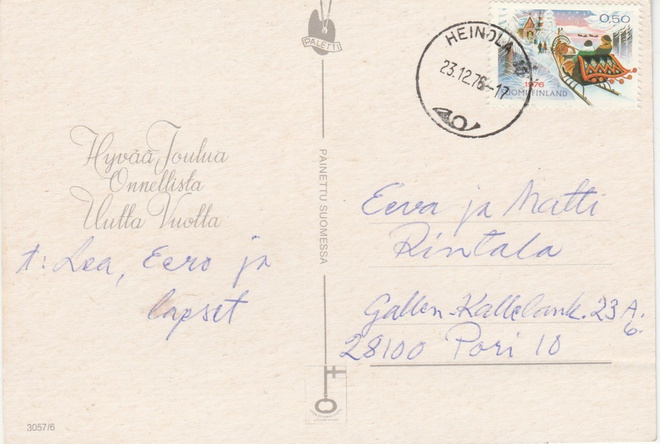 PALETTI
HEINOLA
23.12.76-17
0,50
1976
SUOMI FINLAND
Hyvää Joulua
Onnellista
Uutta Vuotta
t: Lea, Eero ja
lapset
PAINETTU SUOMESSA
Eeva ja Matti
Rintala
Gallen-Kallelank. 23 A.
6.
28100 Pori 10
3057/6